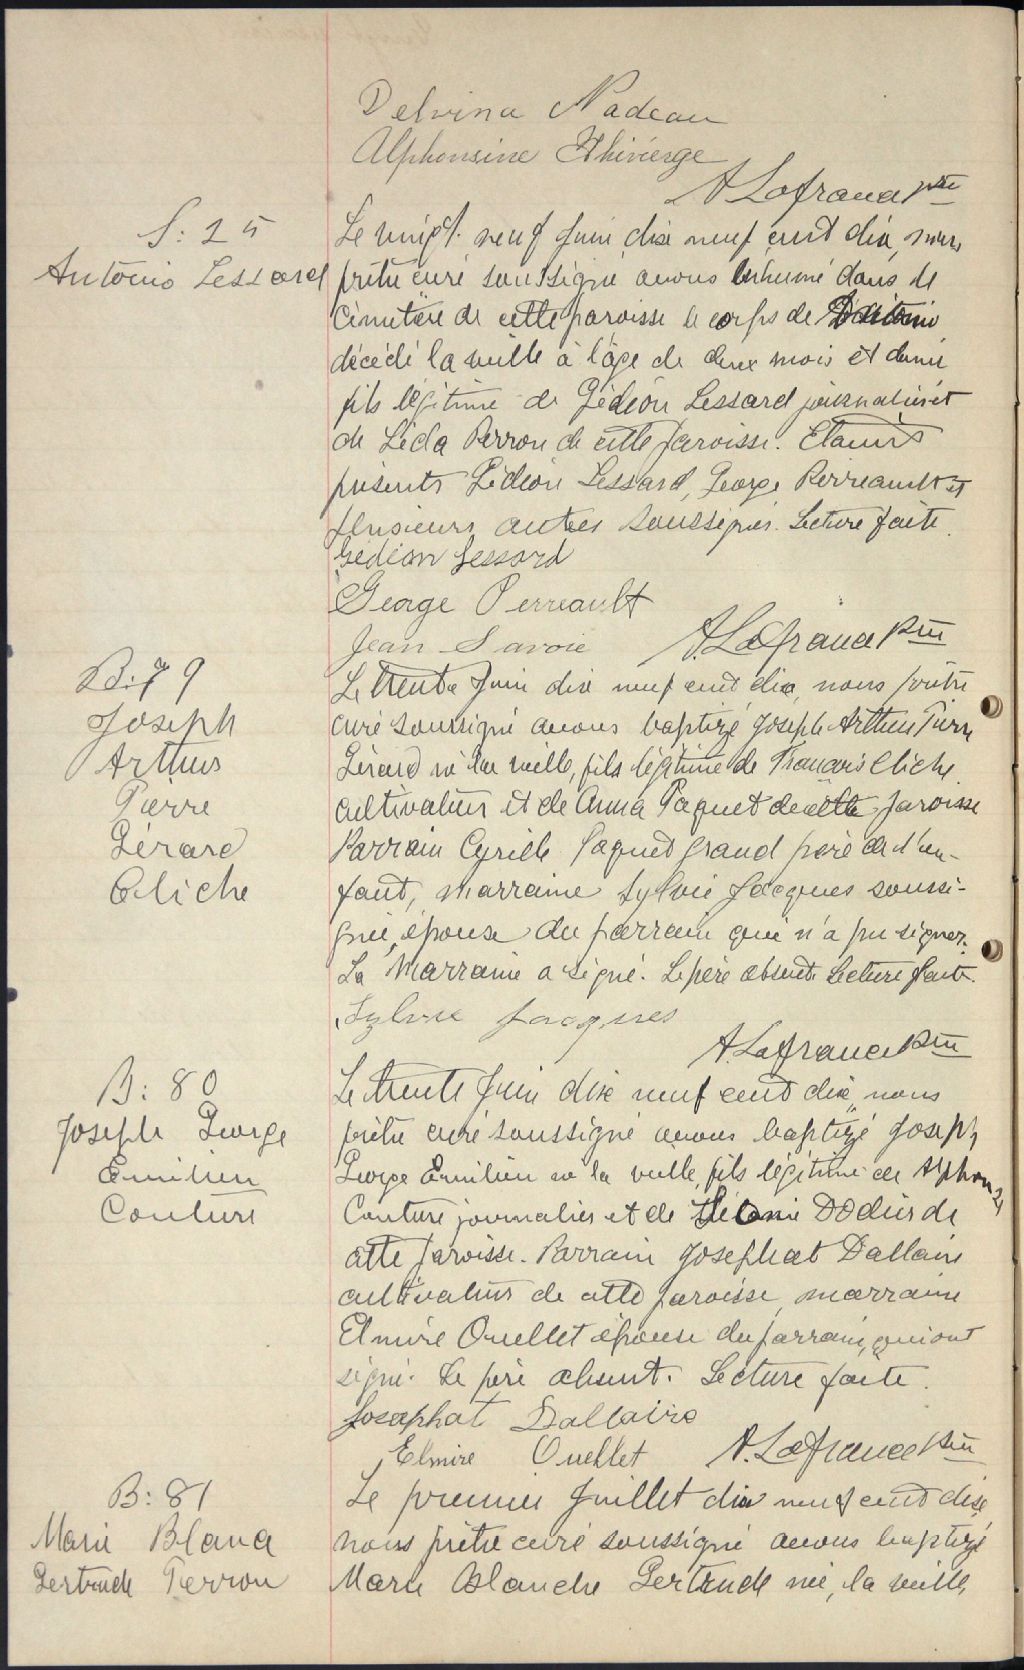 Delvina Nadeau
Alphonsine Thivierge
A Lafrance ptre
S: 25
Antonio Lessard
Le vingt neuf Juin dix neuf cent dix, nous
prêtre curé soussigné avons inhumé dans le
cimetière de cette paroisse le corps de Antonio
décédé la veille à l'âge de deux mois et demi
fils légitime de Gédéon Lessard journalier et
de Léda Perron de cette paroisse. Etaient
présents Gédéon Lessard, George Perreault et
plusieurs autres soussignés. Lecture faite.
Gédéon Lessard
George Perreault
Jean Savoie A. Lafrance Ptre
B: 79
Joseph
Arthur
Pierre
Gérard
Cliche
Le trente Juin dix neuf cent dix, nous prêtre
curé soussigné avons baptizé Joseph Arthur Pierre
Gérard né la veille, fils légitime de François Cliche
cultivateur et de Anna Paquet de cette paroisse
Parrain Cyrille Paquet grand père de l'en-
fant, marraine Sylvie Jacques soussi-
gnée, épouse du parrain qui n'a pu signer.
La Marraine a signé. Le père absent. Lecture faite.
Sylvie Jacques
A. Lafrance Ptre
B: 80
Joseph George
Emilien
Couture
Le trente Juin dix neuf cent dix, nous
prêtre curé soussigné avons baptizé Joseph
George Emilien né la veille, fils légitime de Alphonse
Couture journalier et de Dodier de
cette paroisse. Parrain Josephat Dallaire
cultivateur de cette paroisse, marraine
Elmire Ouellet épouse du parrain, qui ont
signé. Le père absent. Lecture faite.
Josaphat Dallaire
Elmire Ouellet A. Lafrance Ptre
B: 81
Marie Blanc
Gertrude Perron
Le premier Juillet dix neuf cent dix,
nous prêtre curé soussigné avons baptizé
Marie Blanche Gertrude née, la veille,